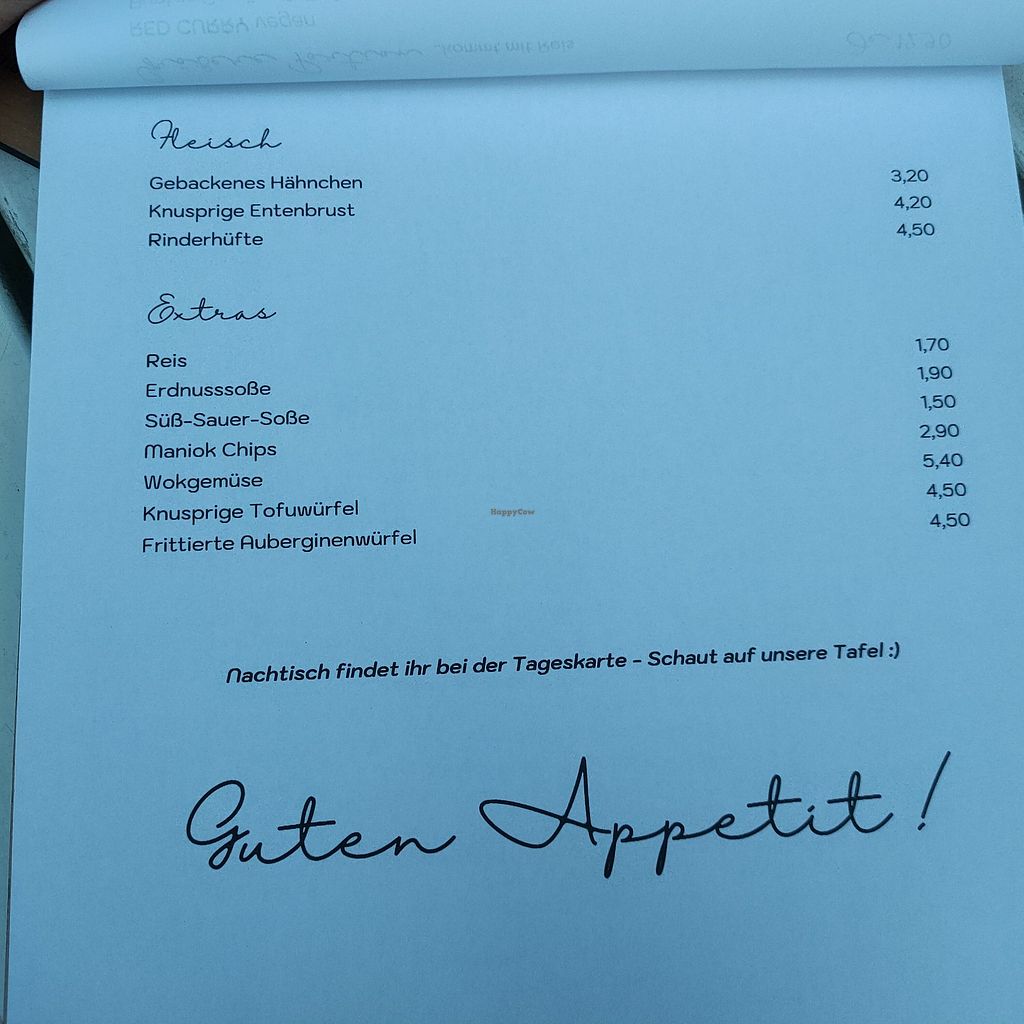 RED CURRY vegan
kommt mit Reis
Fleisch
Gebackenes Hähnchen 3,20
Knusprige Entenbrust 4,20
Rinderhüfte 4,50
Extras
Reis 1,70
Erdnusssoße 1,90
Süß-Sauer-Soße 1,50
Maniok Chips 2,90
Wokgemüse 5,40
Knusprige Tofuwürfel 4,50
Frittierte Auberginenwürfel 4,50
HappyCow
Nachtisch findet ihr bei der Tageskarte - Schaut auf unsere Tafel :)
Guten Appetit !